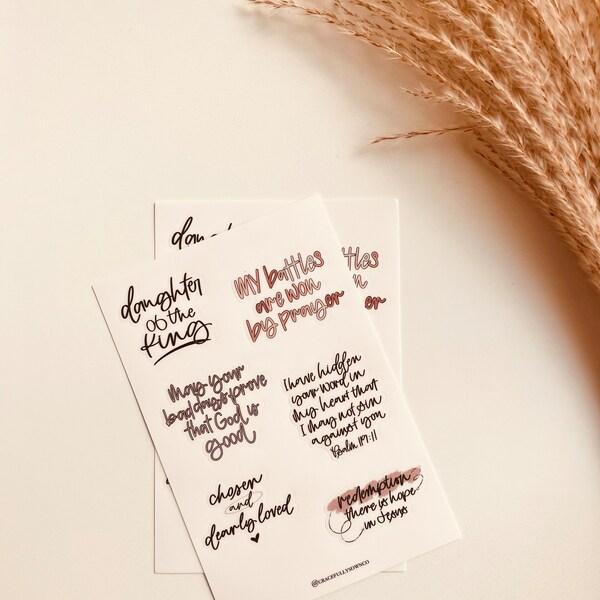 daughter
of the
King
MY battles
are won
by Prayer
may your
bad days prove
that God is
good
I have hidden
your word in
my heart that
I may not sin
against you
Psalm 119:11
chosen
and
dearly loved
redemption
there is hope
in Jesus
@GRACEFULLYSOWNCO